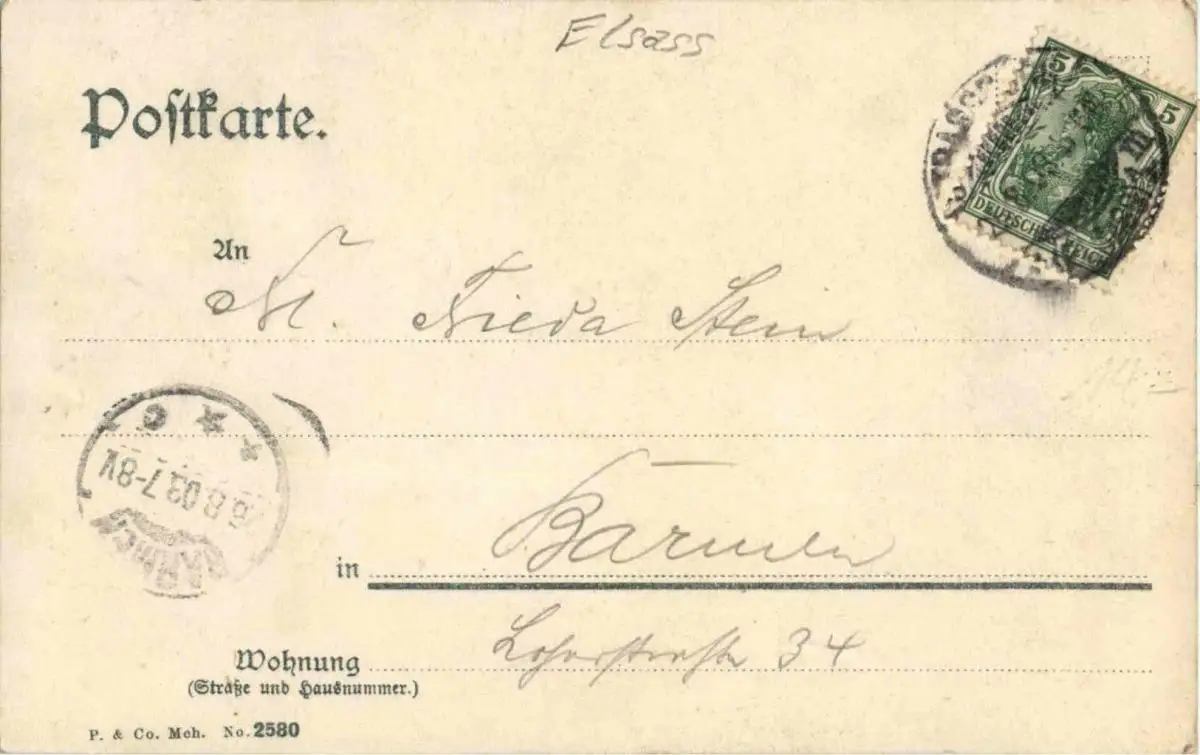 Elsass
Postkarte.
5 5
DEUTSCHES REICH
An
Frl. Frieda Stein
BARMEN
6.8.03.7-8V
c
in Barmen
Wohnung 34
(Straße und Hausnummer.)
P. & Co. Mch. No. 2580